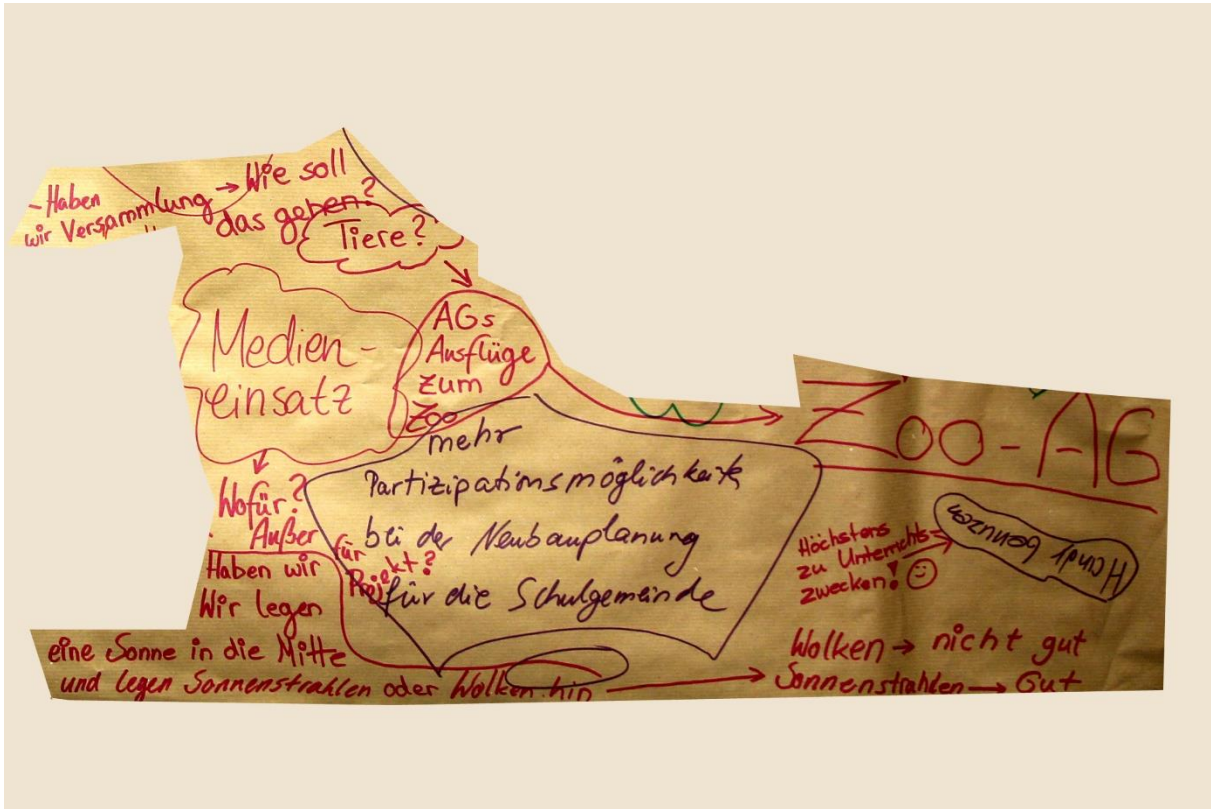 - Haben
wir Versammlung
→ Wie soll
das gehen?
Tiere?
Medien-
einsatz
AGs
Ausflüge
zum
Zoo
Zoo-AG
mehr
Partizipationsmöglichkeit
bei der Neubauplanung
für die Schulgemeinde
Wofür?
Außer
für
Projekt?
Höchstens
zu Unterrichts-
zwecken!
Handy benutzen
Haben wir
Wir legen
eine Sonne in die Mitte
und legen Sonnenstrahlen oder Wolken hin
Wolken → nicht gut
Sonnenstrahlen → Gut